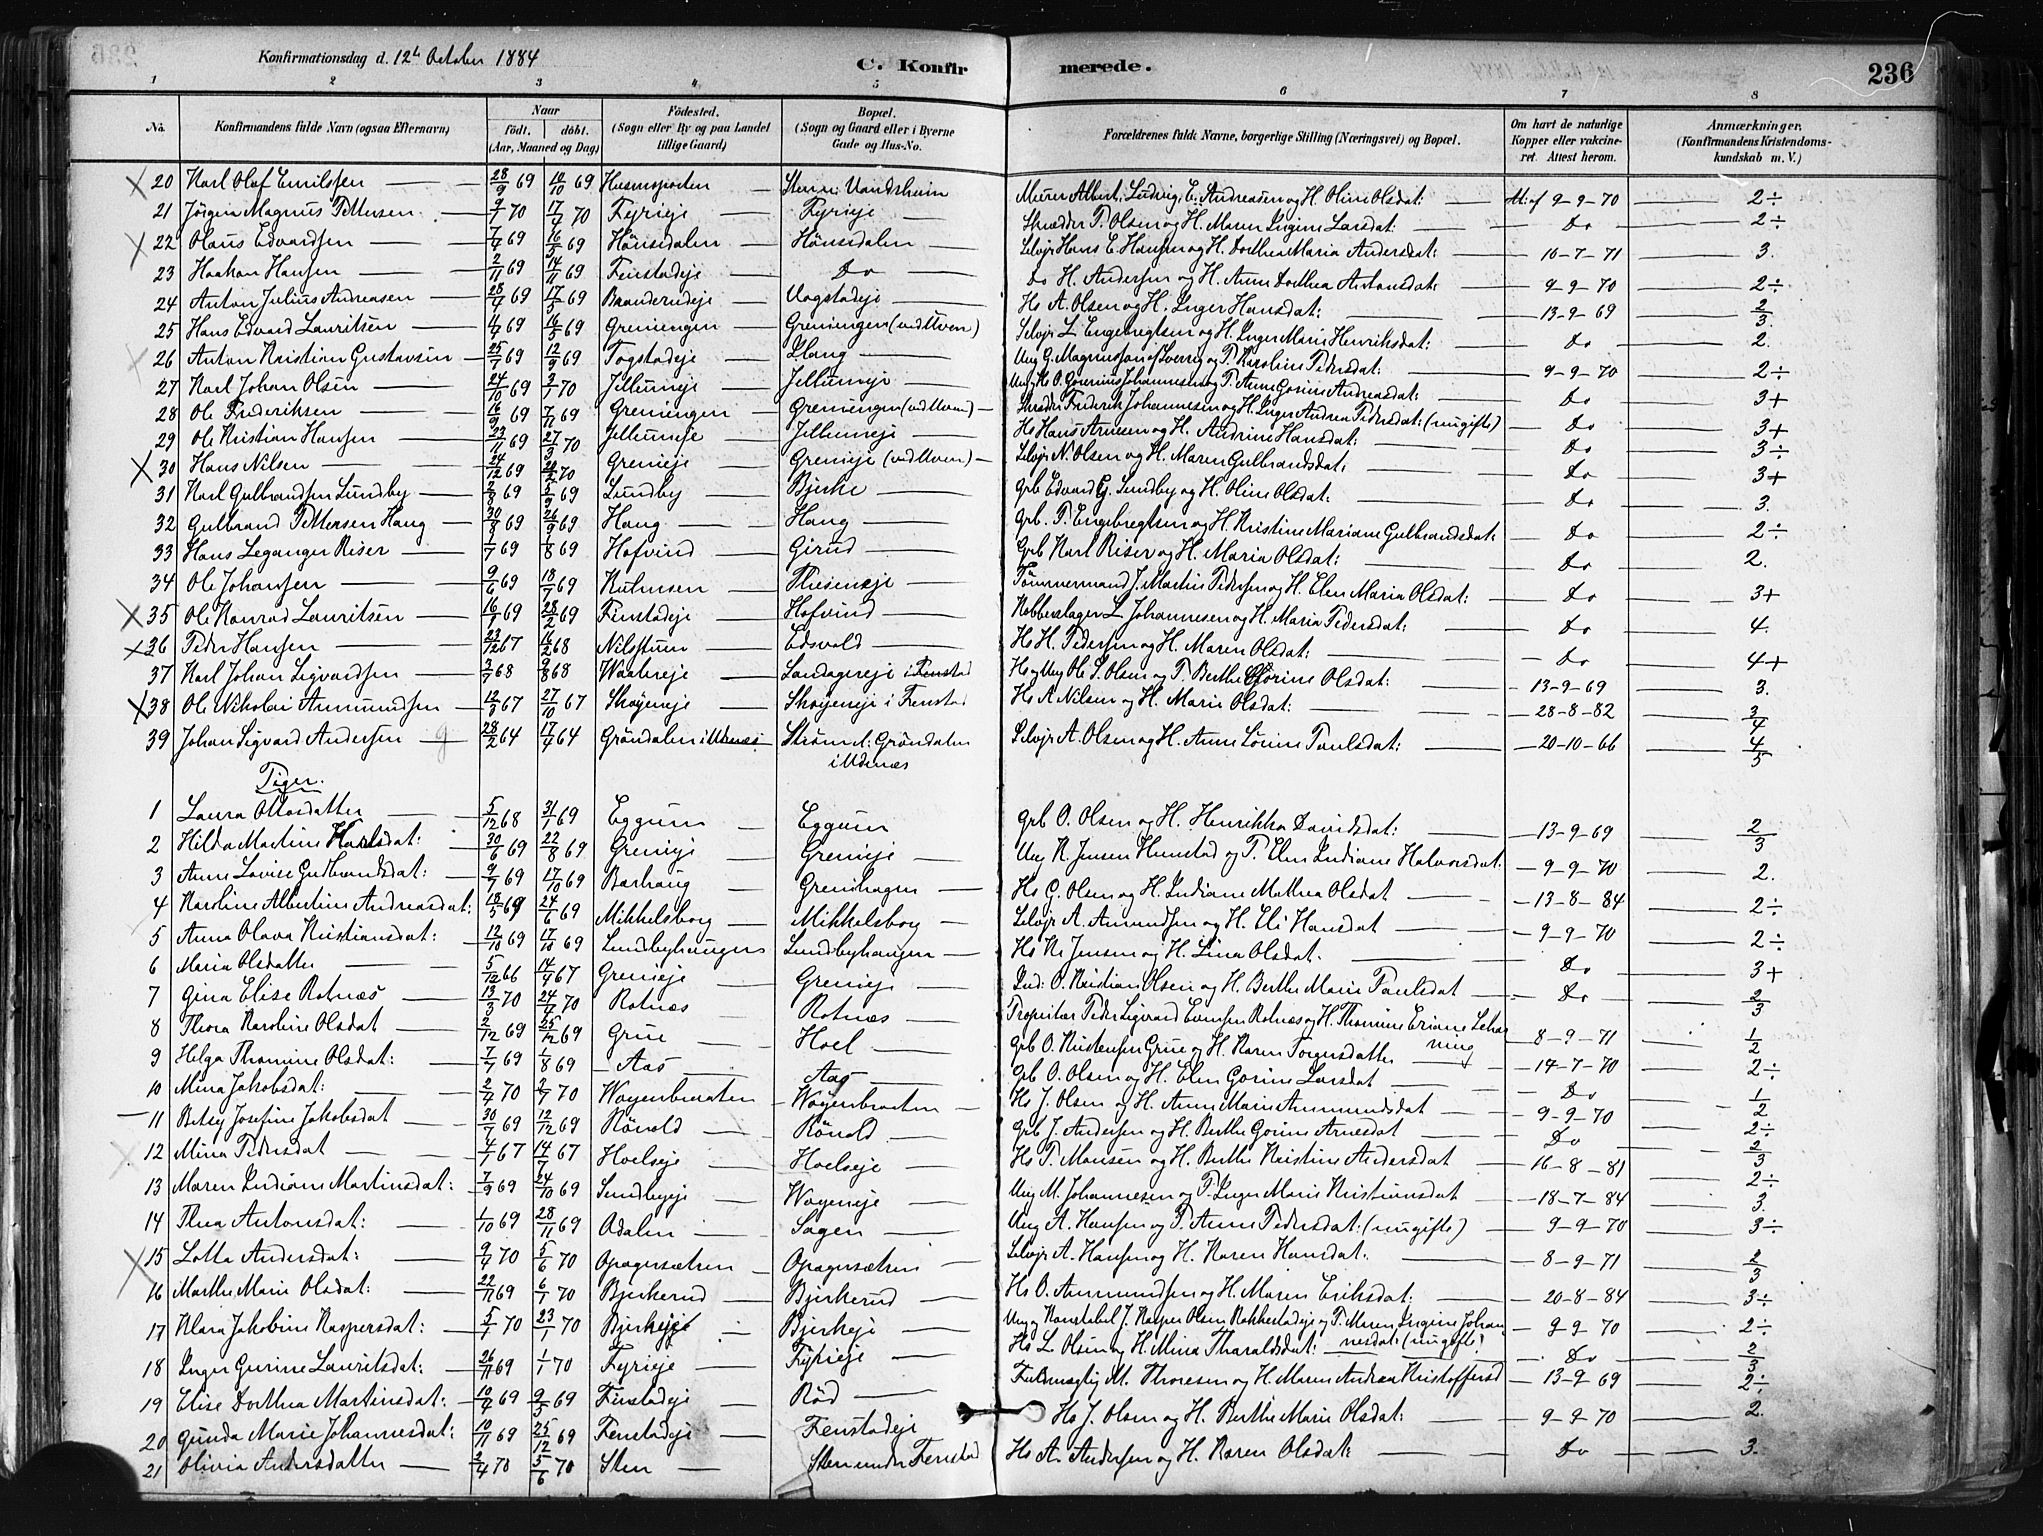 Konfirmationsdag d. 12t October 1884 C. Konfirmerede. 236
1 2 3 4 5 6 7 8
No. Konfirmandens fulde Navn (ogsaa Efternavn) Naar født. døbt. (Aar, Maaned og Dag) Fødested. (Sogn eller By og paa Landet tillige Gaard) Bopæl. (Sogn og Gaard eller i Byerne Gade og Hus-No. Forældrenes fulde Navne, borgerlige Stilling (Næringsvei) og Bopæl. Om havt de naturlige Kopper eller vakcineret. Attest herom. Anmærkninger. (Konfirmandens Kristendomskundskab m. V.)
20 Karl Olaf Emilssen 28/9 69 10/10 69 Murer Albert Ludvig E. Andreasen og H. Oline Olsdat: At: af 9-9-70 2÷
21 Jørgen Magnus Pettersen 70 70 Fyrieje Fyrieje Skræder P. Olsen og H. Maren Lugine Larsdat: Do 2÷
22 Olaus Edvardsen 7/4 69 16/5 69 Hönsedalen Hönsedalen Selvejr Hans E. Hansen og H. Dorthea Maria Andersdat: 10-7-71 3.
23 Haakon Hansen 2/11 69 14/11 69 Fenstadeje Do Do H. Andersen og H. Anne Dorthea Antonsdat: 9-9-70 2÷
24 Anton Julius Andreasen 69 17/5 69 Branderudeje Vogstadeje Hs A. Olsen og H. Inger Hansdat: 13-9-69 2/3
25 Hans Edvard Lauritsen 69 16/5 69 Greningen Greningen (ved Uven) Selvejr L. Engebregtsen og H. Inger Marie Henriksdat: Do 2.
26 Anton Kristian Gustavsen 25/7 69 12/9 69 Togstadeje Ung G. Magnussen af Sverrig og P. Karoline Pedersdat: 9-9-70 2÷
27 Karl Johan Olsen 24/10 69 70 Jellumeje Jellumeje Ung Hs O. Gorenius Johannesen og P. Anne Gorine Andreasdat: Do 3+
28 Ole Frederiksen 16/9 69 7/11 69 Greningen Greningen (ved Uven) Skræder Frederik Johannesen og H. Inger Andrea Pedersdat: (nu gifte) Do 3+
29 Ole Kristian Hansen 23/11 69 27/3 70 Jellumeje Jellumeje Hs Hans Arnesen og H. Andrine Hansdat: Do 3÷
30 Hans Nilsen 24/12 69 70 Grenieje Grenieje (ved Uven) Selvejr N. Olsen og H. Maren Gulbrandsdat: Do 3+
31 Karl Gulbrandsen Lundby 2/8 69 5/9 69 Lundby Bjerke Grb Edvard G. Lundby og H. Oline Olsdat: Do 3.
32 Gulbrand Pettersen Haug 30/8 69 26/9 69 Haug Haug Grb. P. Engebregtsen og H. Kristine Mariane Gulbrandsdat: Do 2÷
33 Hans Leganger Riser 69 69 Hofvind Girud Grb Karl Riser og H. Maria Olsdat: Do 2.
34 Ole Johansen 9/6 69 18/7 69 Kulmoen Thiseneje Tømmermand J. Martin Pedersen og H. Elen Maria Olsdat: Do 3+
35 Ole Konrad Lauritsen 16/1 69 28/2 69 Finstadeje Hofvind Kobberslager L. Johannesen og H. Maria Pedersdat: Do 4.
36 Peder Hansen 23/12 67 16/2 68 Nilsstuen Edsvold Hs H. Pedersen og H. Maren Olsdat: Do 4+
37 Karl Johan Sigvardsen 68 68 Waalereje Landagereje i Fenstad Hs og Ung Ole S. Olsen og P. Berthe Gorine Olsdat: 13-9-69 3.
38 Ole Nikolai Ammundsen 67 27/10 67 Skøyeneje Skøyeneje i Fenstad Hs A. Nilsen og H. Marie Olsdat: 28-8-82 3/4
39 Johan Sigvard Andersen 28/2 64 17/4 64 Gröndalen i Udenæs Ström d: Gröndalen i Udenæs Selvejr A. Olsen og H. Anne Lorine Paulsdat: 20-10-66 4/5
Piger.
1 Laura Ottosdatter 5/12 68 31/1 69 Eggum Eggum Grb O. Olsen og H. Henrikka Davidsdat: 13-9-69 2/3
2 Hilda Martine Karlsdat: 30/6 69 22/8 69 Grenieje Grenieje Ung K. Jensen Hunstad og P. Elen Indiane Halvorsdat: 9-9-70 2.
3 Anne Lovise Gudbrandsdat: 69 17/10 69 Barhaug Grenihagen Hs G. Olsen og H. Indiane Mathea Olsdat 13-8-84 2÷
4 Karoline Albertine Andreasdat: 18/5 69 24/6 69 Mikkelsborg Mikkelsborg Selvejr A. Amundsen og H. Eli Hansdat 9-9-70 2÷
5 Anna Olava Kristiansdat: 12/10 69 17/10 69 Lundbyhaugen Lundbyhaugen Hs K. Jensen og H. Lina Olsdat. Do 3+
6 Maria Olsdatter 5/12 66 14/4 67 Grenieje Grenieje Ind: O. Kristian Olsen og H. Berthe Marie Paulsdat Do 2/3
7 Gina Elise Rotnæs 13/3 70 24/4 70 Rotnæs Rotnæs Proprietær Peder Sigvard Evensen Rotnæs og H. Thomine Eriane Schøning 8-9-71 1/2
8 Thora Karoline Olsdat 2/12 69 25/12 69 Grue Hoel Grb O. Kristensen Grue og H. Karen Torgersdatter 14-7-70 2÷
9 Helga Thomine Olsdat: 7/7 69 1/8 69 Aas Aas Grb O. Olsen og H. Elen Gorine Larsdat Do 1/2
10 Mina Jakobsdat: 2/4 70 70 Woyenbraaten Woyenbraaten Hs J. Olsen og H. Anne Marie Ammundsdat 9-9-70 2÷
11 Betsy Josefine Jakobsdat 30/7 69 12/12 69 Rönold Rönold Grb J. Andersen og H. Berthe Gorine Arnesdat Do 2/3
12 Mina Pedersdat 4/1 67 14/7 67 Hoelseje Hoelseje Hs P. Monsen og H. Berthe Kristine Andersdat 16-8-81 2÷
13 Maren Indiane Martinsdat: 7/9 69 24/10 69 Lundbyeje Woyeneje Ung M. Johannesen og P. Inger Marie Kristiansdat 18-7-84 3.
14 Thea Antonsdat: 1/10 69 28/11 69 Odalen Sagen Ung A. Hansen og P. Anne Pedersdat: (nu gifte) 9-9-70 3÷
15 Lotta Andersdat: 9/4 70 5/6 70 Opagersætren Opagersætren Selvejr A. Hansen og H. Karen Hansdat: 8-9-71 2/3
16 Marthe Marie Olsdat: 22/11 69 6/1 70 Bjerkerud Bjerkerud Hs O. Ammundsen og H. Maren Eriksdat: 20-8-84 3÷
17 Klara Jakobine Kaspersdat: 5/1 70 23/1 70 Bjerkeje Bjerkeje Ung Konstabel J. Kasper Olsen Rakkestadeje og P. Maren Lugine Johannesdat: (nu gifte) 9-9-70 2÷
18 Inger Gurine Lauritsdat: 26/11 69 1/1 70 Fyrieje Fyrieje Hs L. Olsen og H. Mina Tharaldsdat: Do 2/3
19 Elise Dorthea Martinsdat: 10/4 69 9/5 69 Finstadeje Röd Fuldmægtig M. Thoresen og H. Maren Andrea Kristoffersd 13-9-69 2÷
20 Gunda Marie Johannesdat: 10/11 69 25/12 69 Fenstadeje Fenstadeje Hs J. Olsen og H. Berthe Marie Olsdat: 9-9-70 2.
21 Olivia Andersdatter 2/4 70 5/6 70 Sten Sten under Fenstad Hs A. Andersen og H. Karen Olsdat: Do 3.